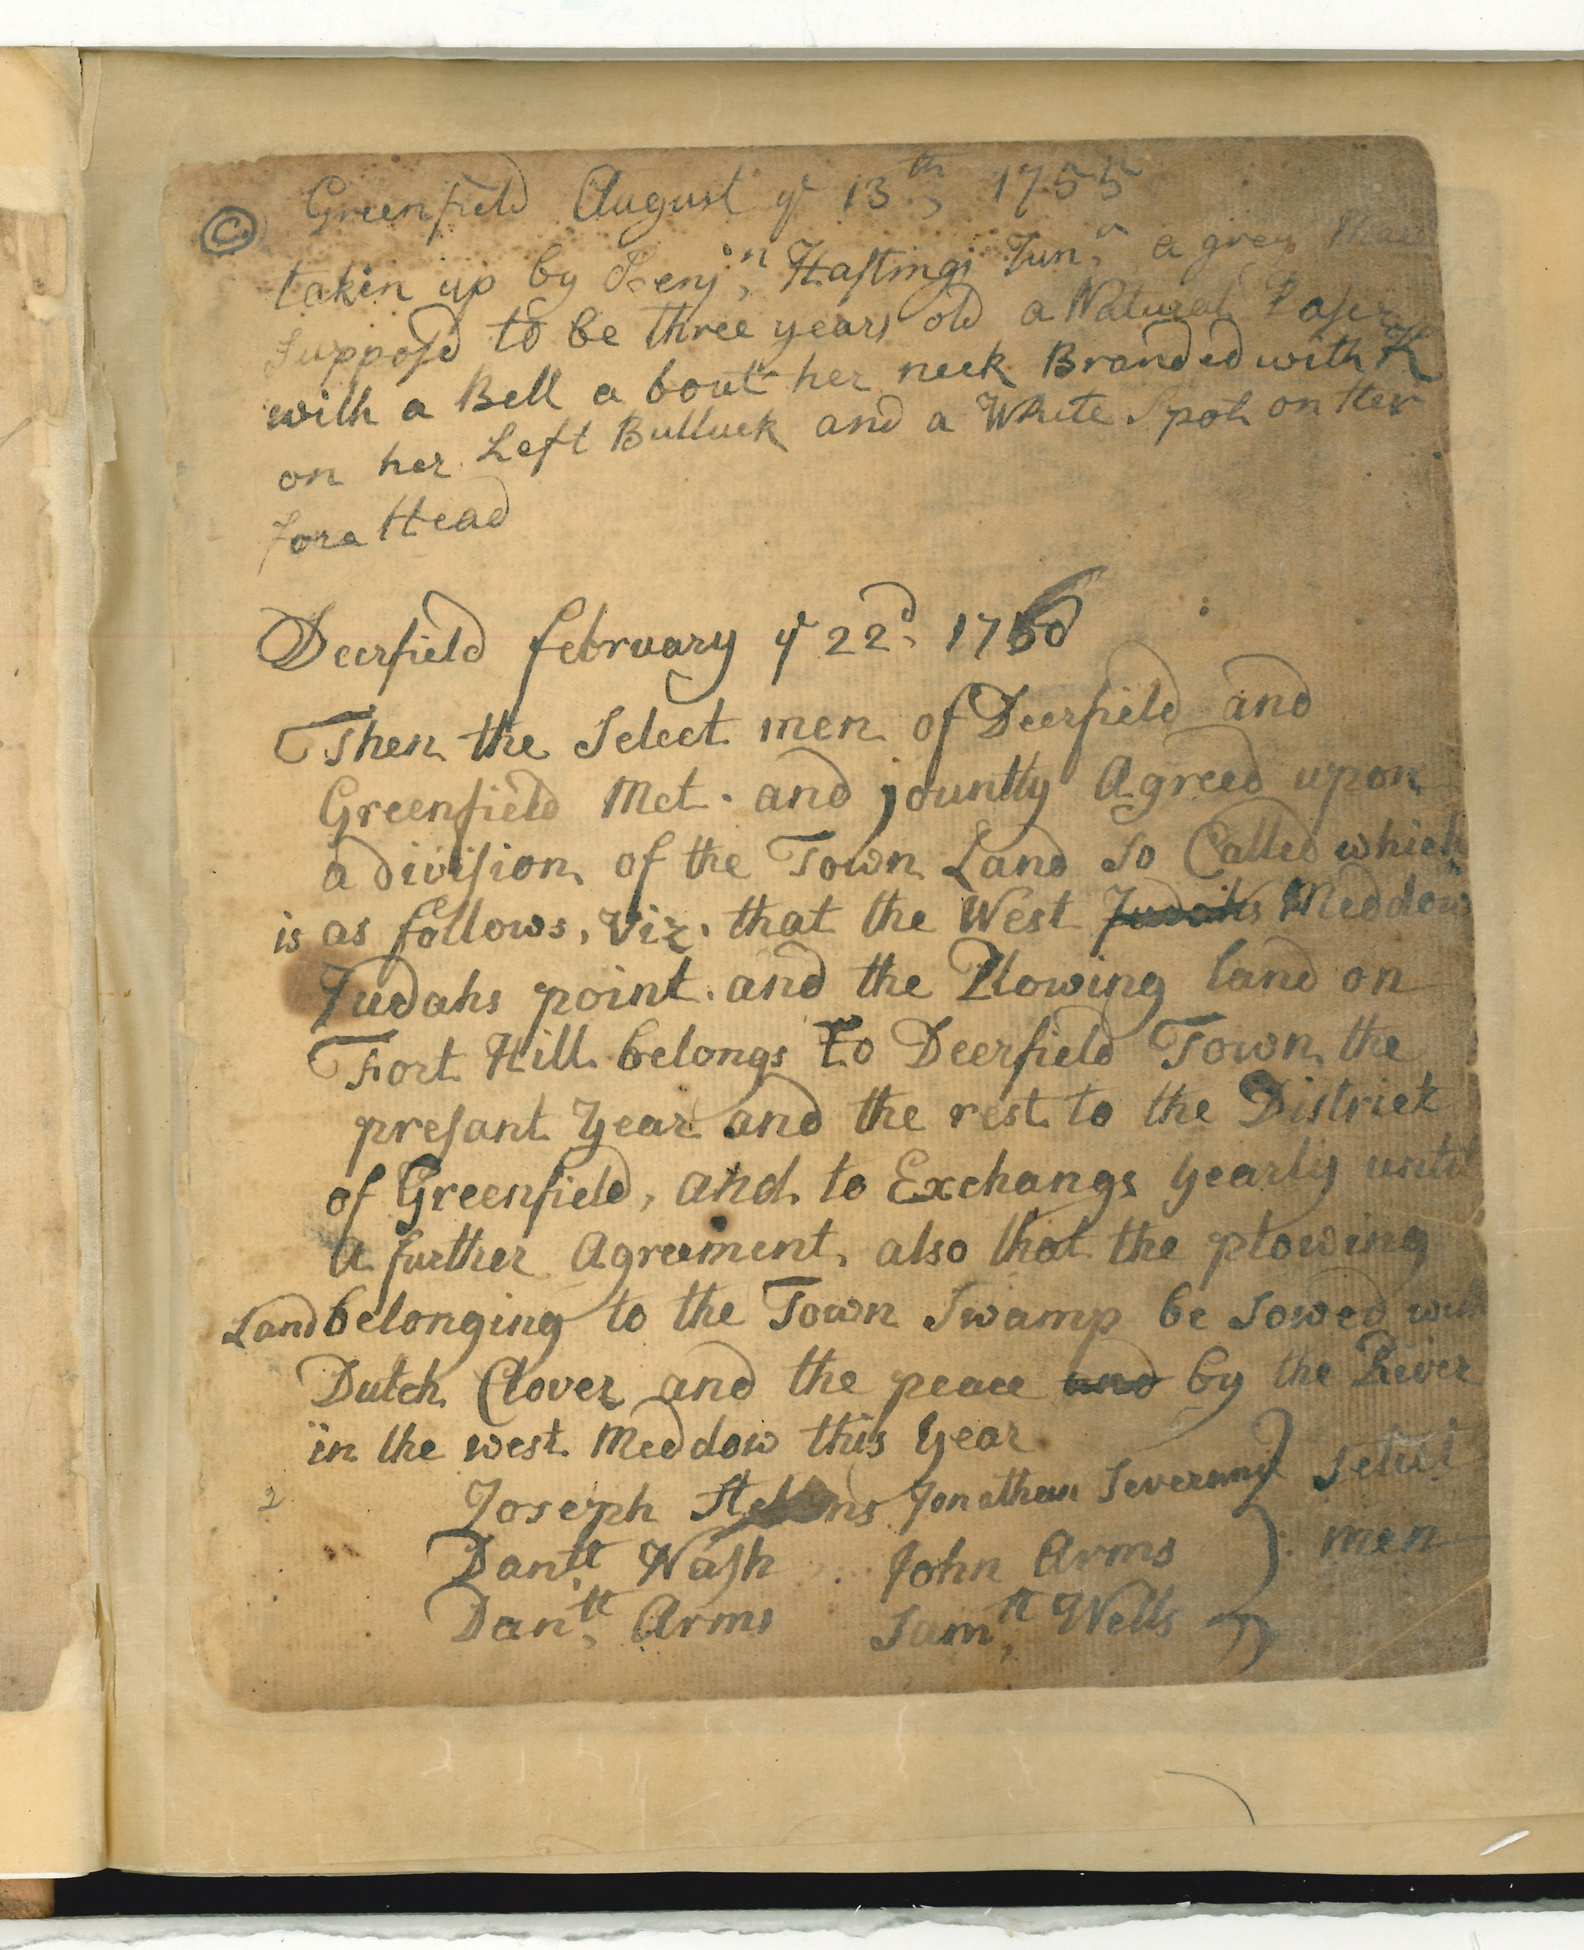 © Greenfield August ye 13th, 1755
taken up by Benjn, Hastings Junr, a grey Mare
Supposd to be three years old a Natural Paser
with a Bell a bout her neck Branded with K
on her Left Bulluck and a White Spot on Her
fore Head
Deerfield february ye 22d 1760
Then the Select men of Deerfield and
Greenfield Met. and jountly Agreed upon
a division of the Town Land So Called which
is as follows, Viz. that the West Judahs Meddow
Judahs point. and the Plowing land on
Fort Hill belongs to Deerfield Town the
presant Year and the rest to the District
of Greenfield, and to Exchange yearly until
a further Agreement, also that the plowing
Land belonging to the Town Swamp be Sowed with
Dutch Clover and the peace and by the River
in the west Meddow this Year
2 Joseph Stebbins Jonathan Severance } Select
Danll, Nash John Arms } men
Danll, Arms Samll, Wells }